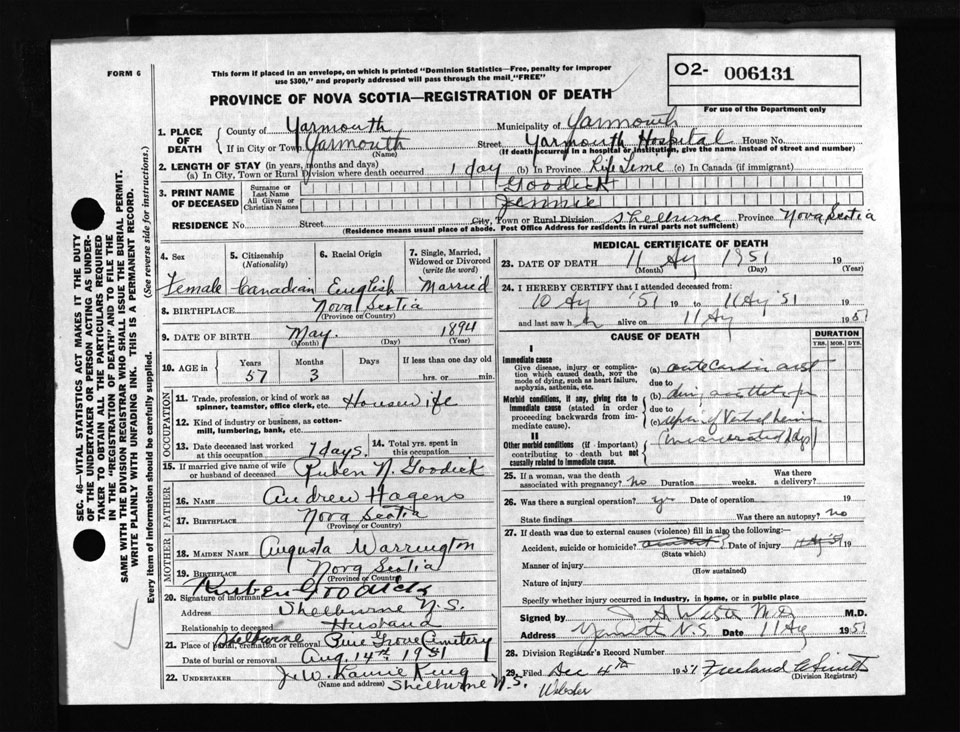 FORM 6
This form if placed in an envelope, on which is printed "Dominion Statistics—Free, penalty for improper
use $300," and properly addressed will pass through the mail "FREE"
PROVINCE OF NOVA SCOTIA—REGISTRATION OF DEATH
02- 006131
For use of the Department only
1. PLACE OF DEATH
County of Yarmouth Municipality of Yarmouth
If in City or Town Yarmouth (Name) Street Yarmouth Hospital House No.
(If death occurred in a hospital or institution, give the name instead of street and number)
2. LENGTH OF STAY (in years, months and days)
(a) In City, Town or Rural Division where death occurred 1 day (b) In Province Life Time (c) In Canada (if immigrant)
3. PRINT NAME OF DECEASED
Surname or Last Name Goodick
All Given or Christian Names Jennie
RESIDENCE No. Street City, Town or Rural Division Shelburne Province Nova Scotia
(Residence means usual place of abode. Post Office Address for residents in rural parts not sufficient)
4. Sex Female
5. Citizenship (Nationality) Canadian
6. Racial Origin English
7. Single, Married, Widowed or Divorced (write the word) Married
8. BIRTHPLACE Nova Scotia
(Province or Country)
9. DATE OF BIRTH May 1894
(Month) (Day) (Year)
10. AGE in Years 57 Months 3 Days If less than one day old hrs. or min.
OCCUPATION
11. Trade, profession, or kind of work as spinner, teamster, office clerk, etc. Housewife
12. Kind of industry or business, as cotton-mill, lumbering, bank, etc.
13. Date deceased last worked at this occupation 7 days.
14. Total yrs. spent in this occupation
15. If married give name of wife or husband of deceased Ruben N. Goodick
FATHER
16. NAME Andrew Hagens
17. BIRTHPLACE Nova Scotia
(Province or Country)
MOTHER
18. MAIDEN NAME Augusta Warrington
19. BIRTHPLACE Nova Scotia
(Province or Country)
20. Signature of informant Ruben Goodick
Address Shelburne N.S.
Relationship to deceased Husband
21. Place of burial, cremation or removal Shelburne Pine Grove Cemetery
Date of burial or removal Aug. 14th 1951
22. UNDERTAKER King
(Name and address) Shelburne N.S.
MEDICAL CERTIFICATE OF DEATH
23. DATE OF DEATH 11 Ag 1951 19
(Month) (Day) (Year)
24. I HEREBY CERTIFY that I attended deceased from:
10 Ag '51 19 to 11 Ag '51 19
and last saw her alive on 11 Ag 1951
CAUSE OF DEATH
DURATION
YRS. MOS. DYS.
I
Immediate cause
Give disease, injury or complication which caused death, NOT the mode of dying, such as heart failure, asphyxia, asthenia, etc.
(a) acute
due to
Morbid conditions, if any, giving rise to immediate cause (stated in order proceeding backwards from immediate cause).
(b)
due to
(c) hernia
II
Other morbid conditions (if important) contributing to death but not causally related to immediate cause.
25. If a woman, was the death associated with pregnancy? no Duration weeks. Was there a delivery?
26. Was there a surgical operation? yes Date of operation 19
State findings Was there an autopsy? no
27. If death was due to external causes (violence) fill in also the following:—
Accident, suicide or homicide? Date of injury 19
(State which)
Manner of injury
(How sustained)
Nature of injury
Specify whether injury occurred in industry, in home, or in public place
Signed by M.D. M.D.
Address Yarmouth N.S Date 11 Ag 1951
28. Division Registrar's Record Number
29. Filed Dec 4th 1951 Freeland
(Division Registrar)
Webster
SEC. 46—VITAL STATISTICS ACT MAKES IT THE DUTY
OF THE UNDERTAKER OR PERSON ACTING AS UNDER-
TAKER TO OBTAIN ALL THE PARTICULARS REQUIRED
IN THE "REGISTRATION OF DEATH" AND TO FILE THE
SAME WITH THE DIVISION REGISTRAR WHO SHALL ISSUE THE BURIAL PERMIT.
WRITE PLAINLY WITH UNFADING INK. THIS IS A PERMANENT RECORD.
Every item of information should be carefully supplied. (See reverse side for instructions.)